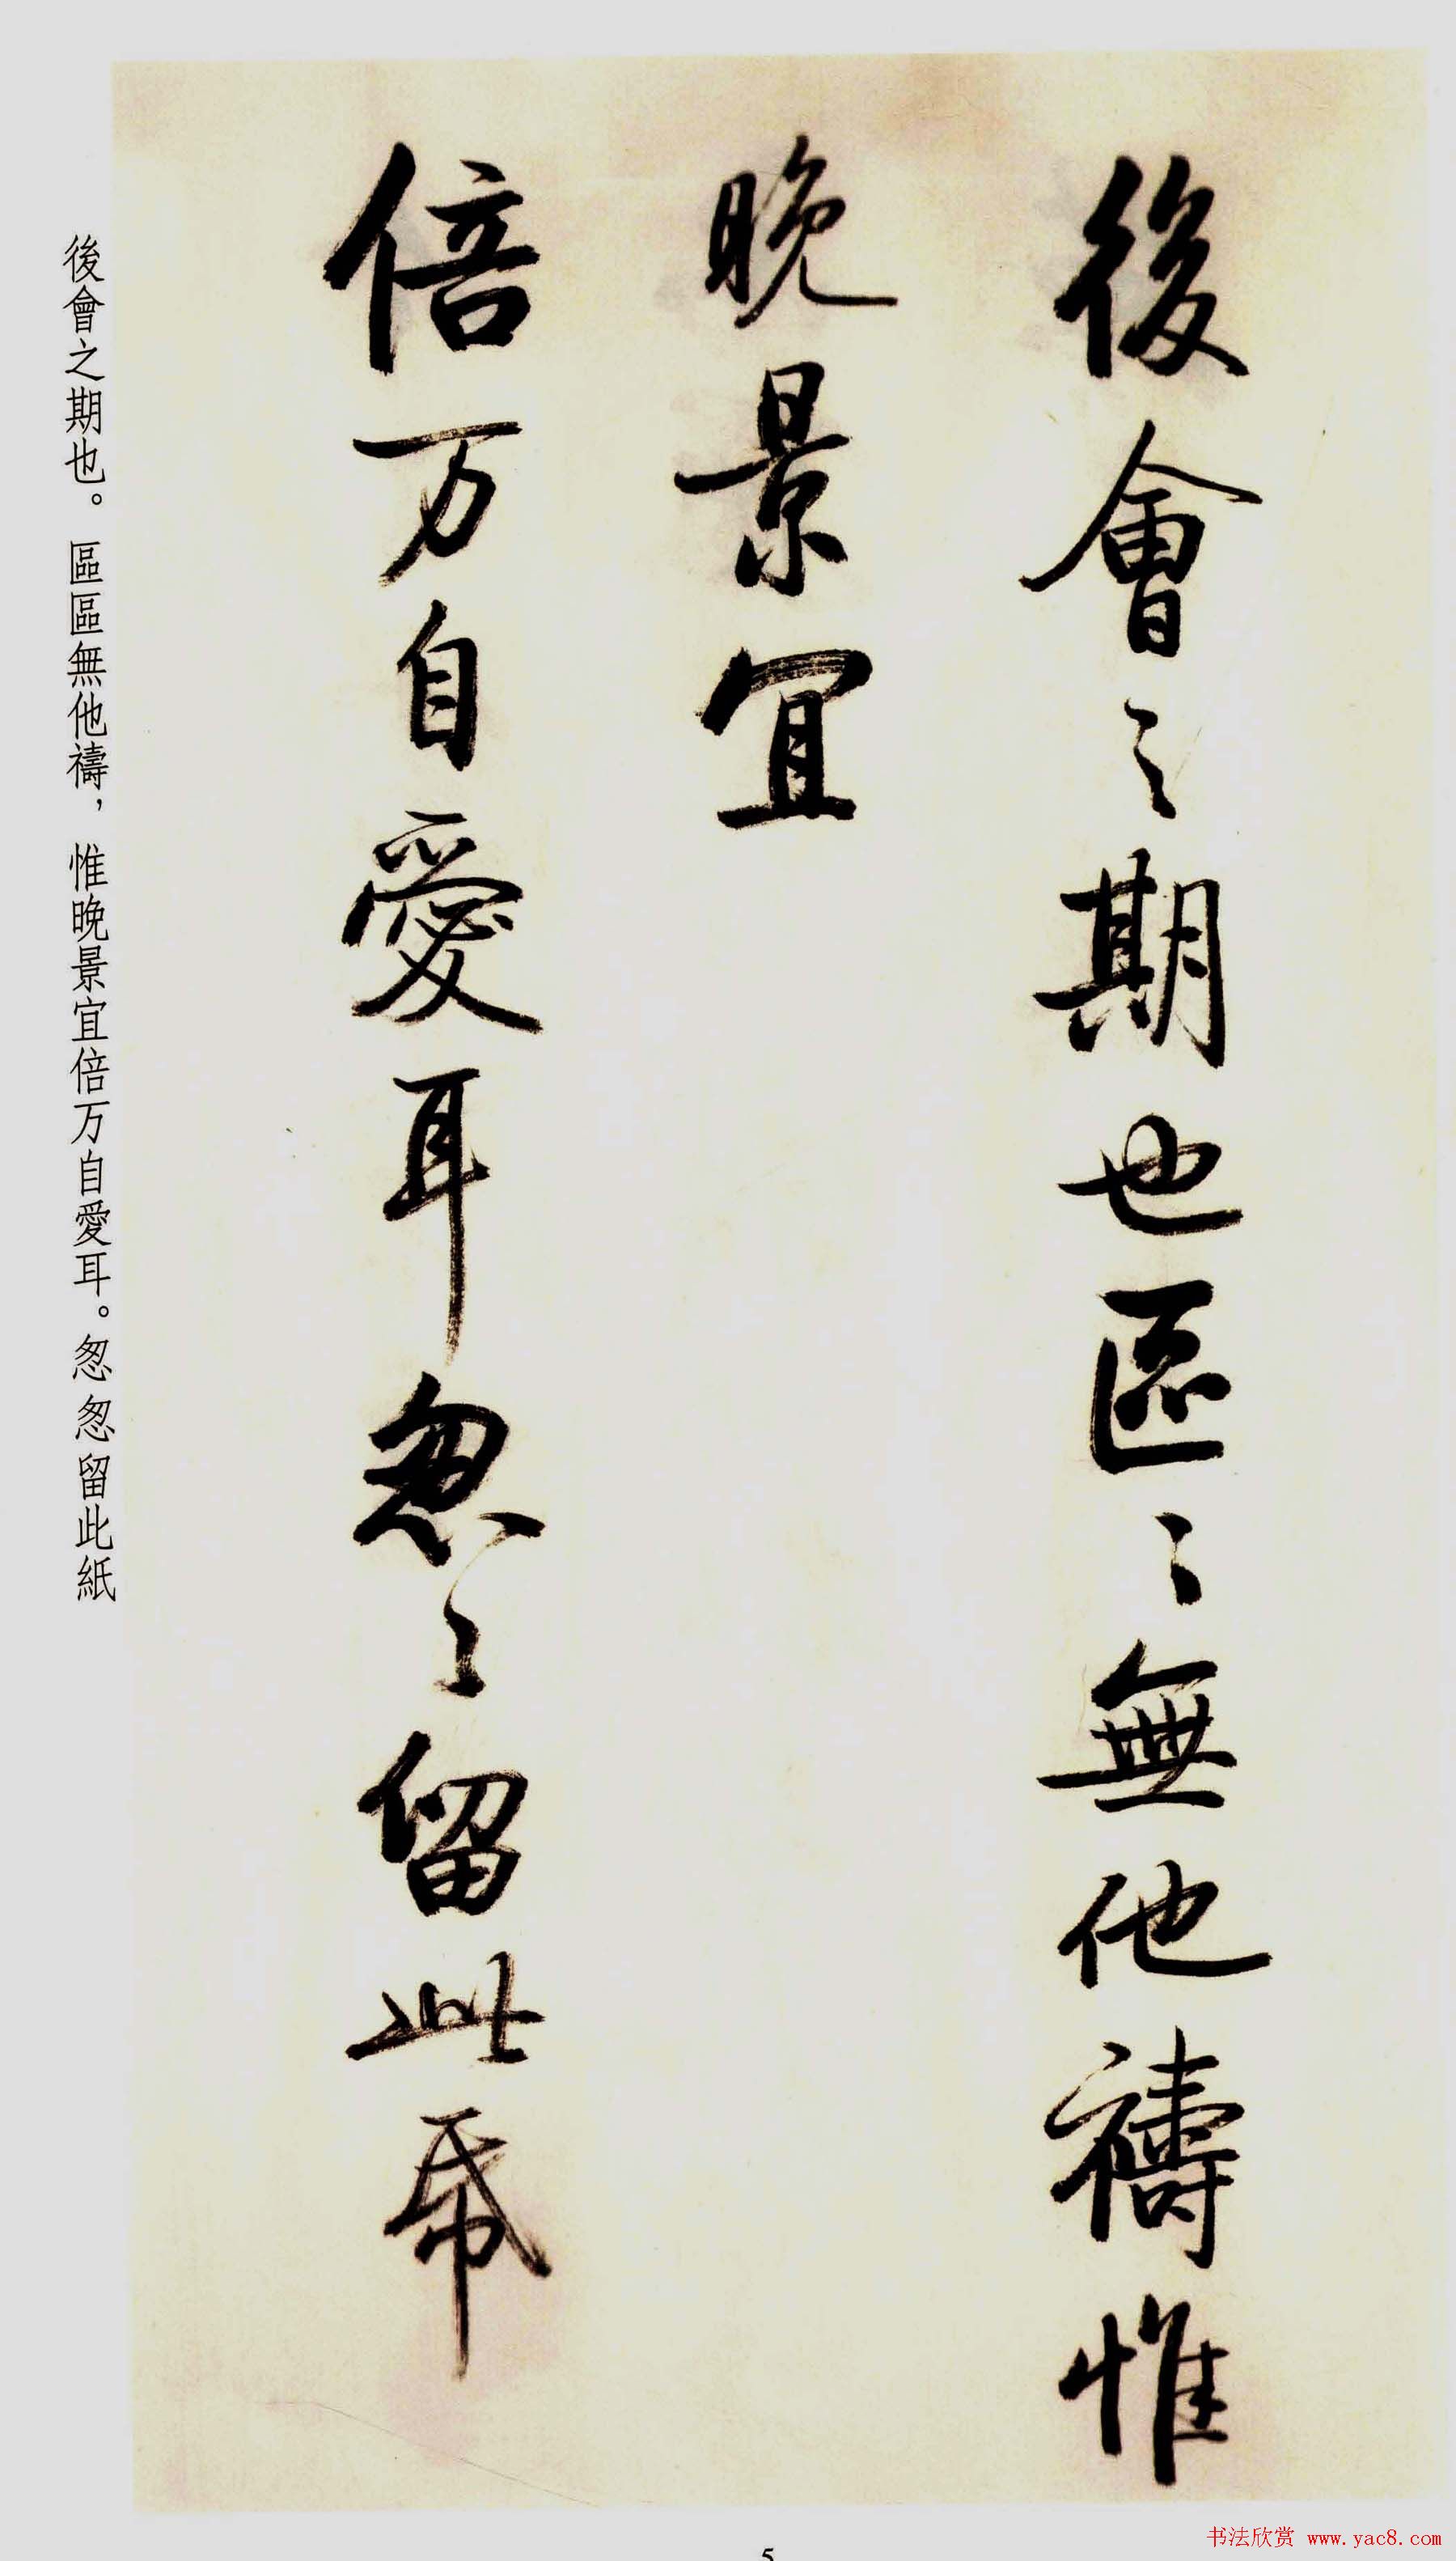 後會之期也區〻無他禱惟
晚景宜
倍万自愛耳怱〻留此帋
後會之期也。區區無他禱，惟晚景宜倍万自愛耳。怱怱留此紙
5
书法欣赏 www.yac8.com